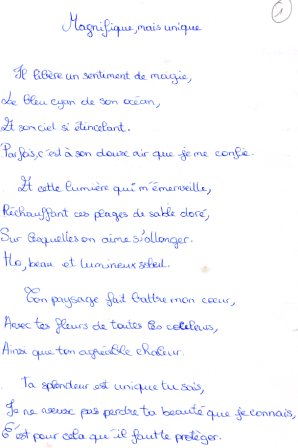 1
Magnifique, mais unique
Il libère un sentiment de magie,
Le bleu cyan de son océan,
Et son ciel si étincelant.
Parfois, c'est à son doux air que je me confie.
Et cette lumière qui m'émerveille,
Réchauffant ces plages de sable doré,
Sur lesquelles on aime s'allonger.
Ho, beau et lumineux soleil.
Ton paysage fait battre mon cœur,
Avec tes fleurs de toutes les couleurs,
Ainsi que ton agréable chaleur.
Ta splendeur est unique tu sais,
Je ne veux pas perdre ta beauté que je connais,
C'est pour cela qu'il faut le protéger.